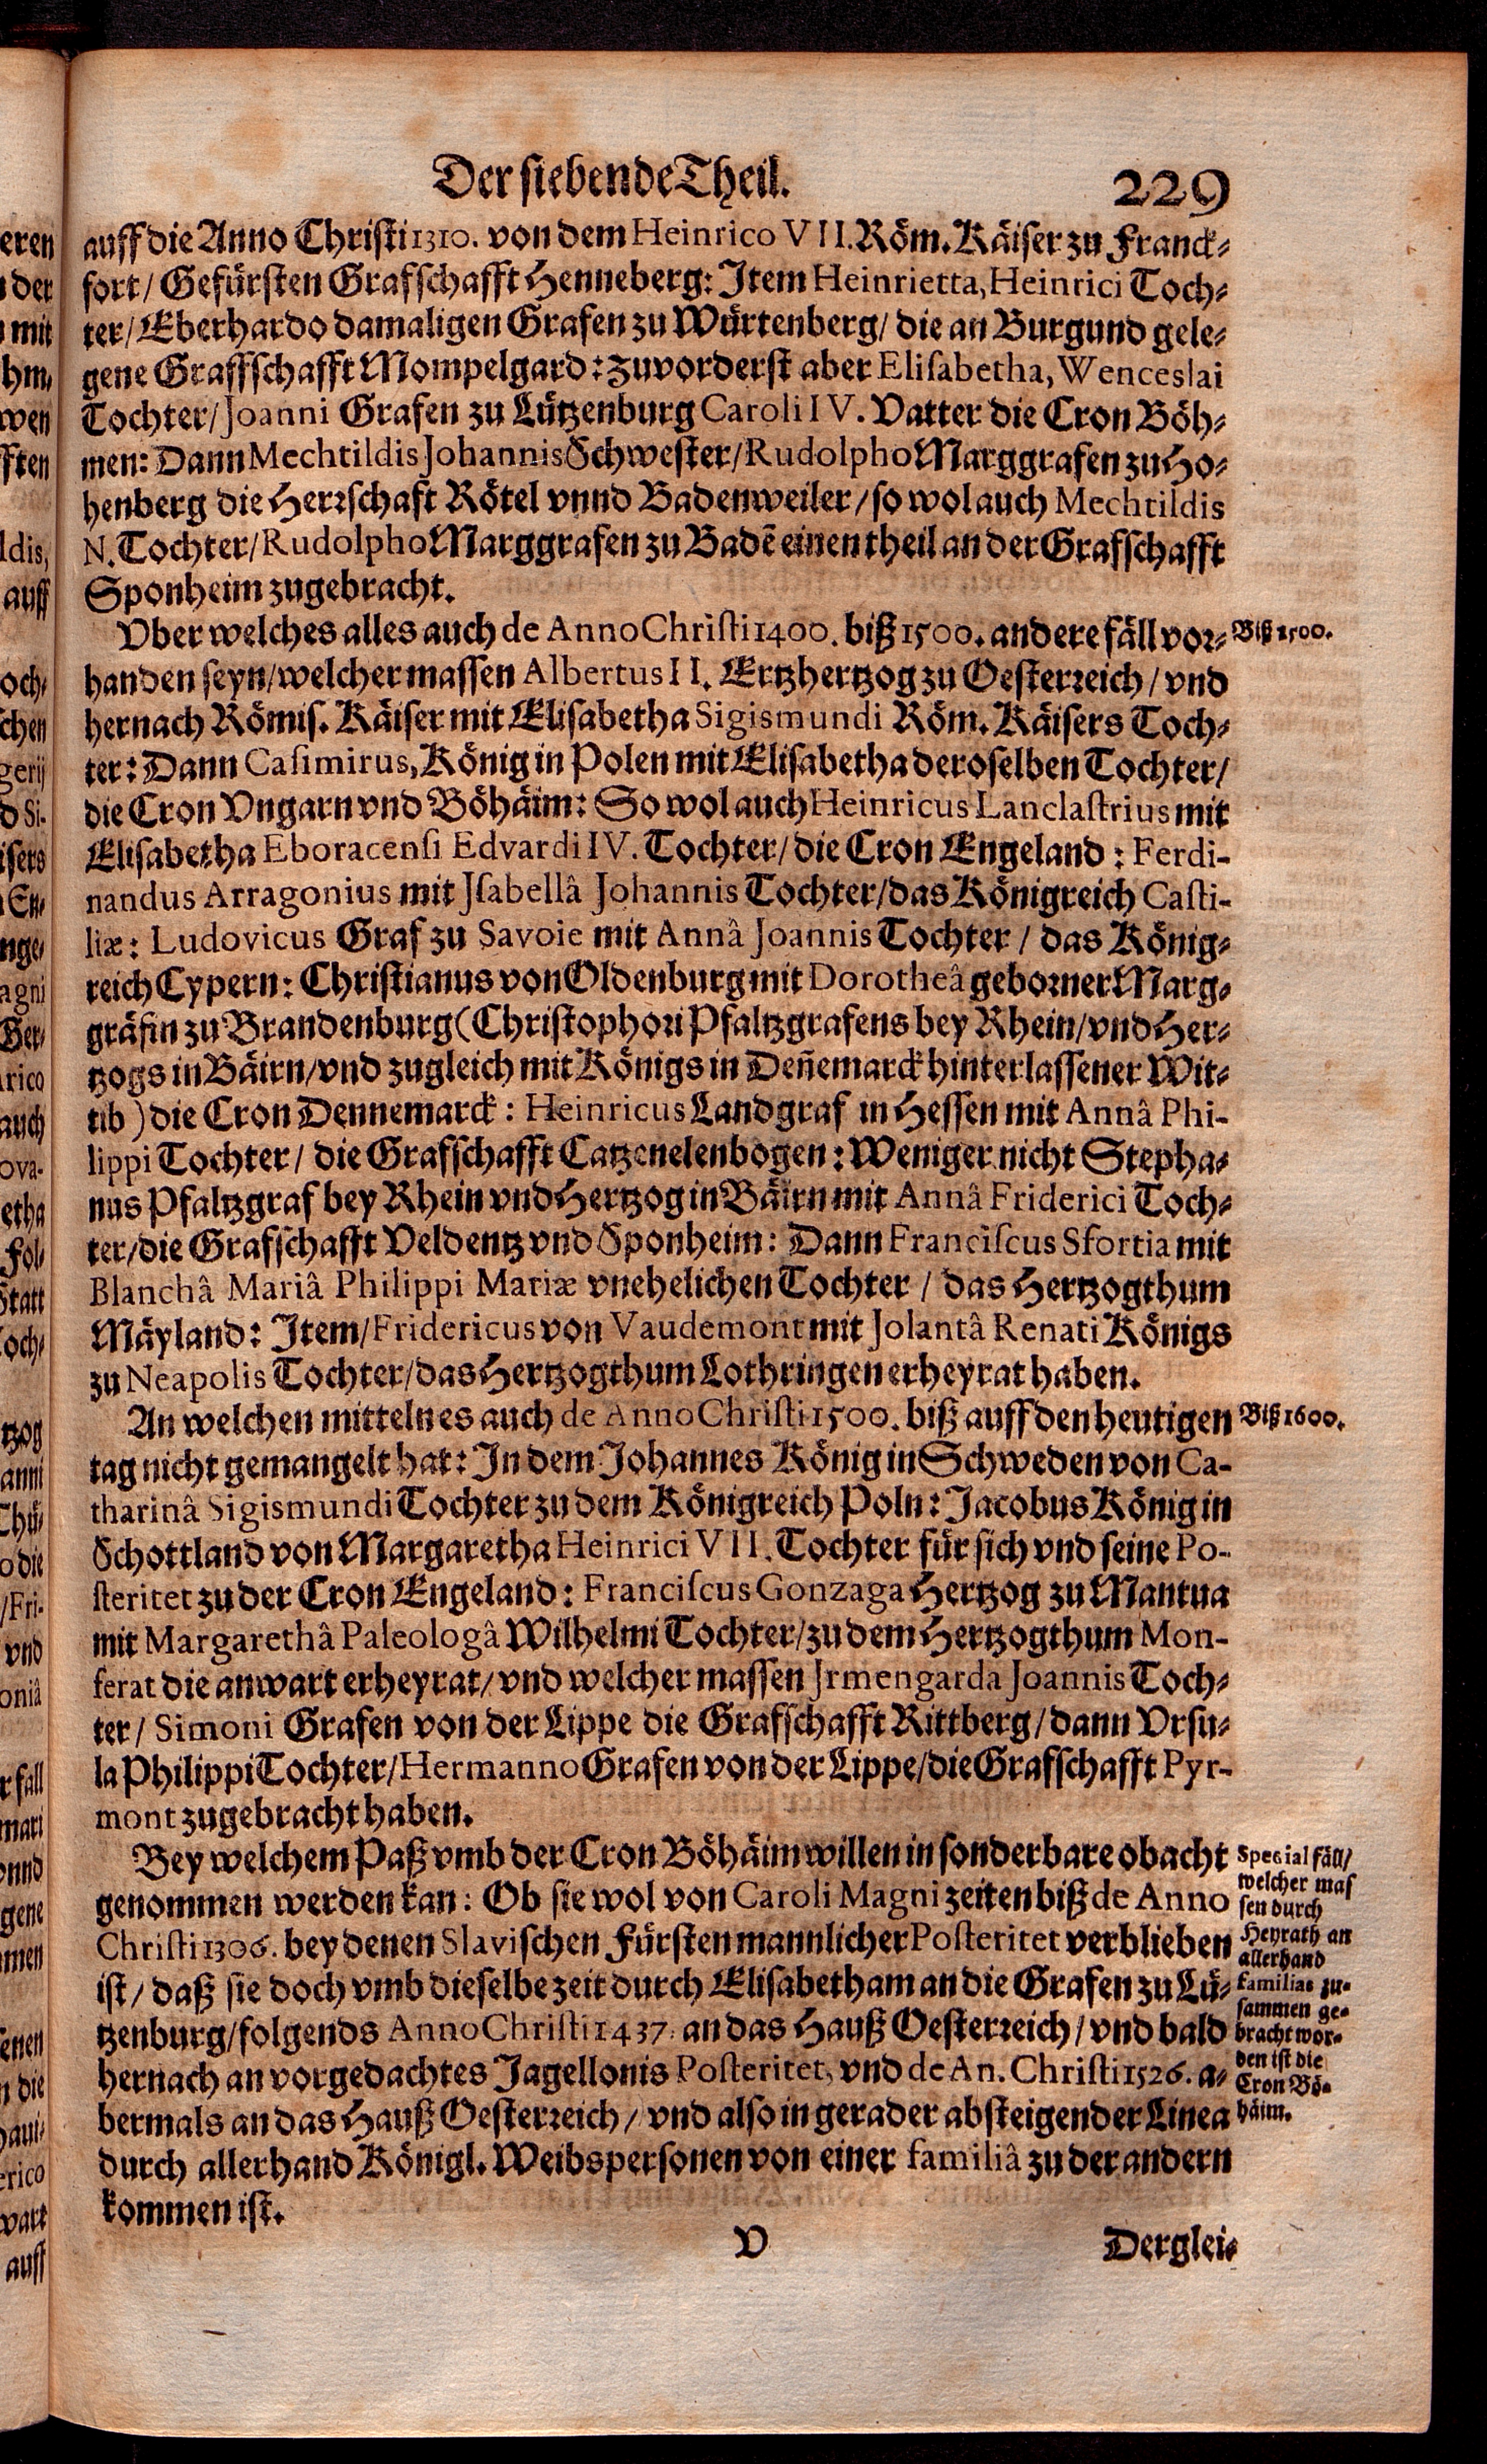 Der siebende Theil. 229
auff die Anno Christi 1310. von dem Heinrico VII. Röm. Käiser zu Franck-
fort / Gefürsten Grafschafft Henneberg: Item Heinrietta, Heinrici Toch-
ter / Eberhardo damaligen Grafen zu Würtenberg / die an Burgund gele-
gene Graffschafft Mompelgard: zuvorderst aber Elisabetha, Wenceslai
Tochter / Joanni Grafen zu Lützenburg Caroli IV. Vatter die Cron Böh-
men: Dann Mechtildis Johannis Schwester / Rudolpho Marggrafen zu Ho-
henberg die Herrschaft Rötel vnnd Badenweiler / so wol auch Mechtildis
N. Tochter / Rudolpho Marggrafen zu Badẽ einen theil an der Grafschafft
Sponheim zugebracht.
Vber welches alles auch de Anno Christi 1400. biß 1500. andere fäll vor-
Biß 1500.
handen seyn / welcher massen Albertus II. Ertzhertzog zu Oesterreich / vnd
hernach Römis. Käiser mit Elisabetha Sigismundi Röm. Käisers Toch-
ter: Dann Casimirus, König in Polen mit Elisabetha deroselben Tochter /
die Cron Vngarn vnd Böhäim: So wol auch Heinricus Lanclastrius mit
Elisabetha Eboracensi Edvardi IV. Tochter / die Cron Engeland: Ferdi-
nandus Arragonius mit Isabellâ Johannis Tochter / das Königreich Casti-
liæ: Ludovicus Graf zu Savoie mit Annâ Joannis Tochter / das König-
reich Cypern: Christianus von Oldenburg mit Dorotheâ geborner Marg-
gräfin zu Brandenburg (Christophori Pfaltzgrafens bey Rhein / vnd Her-
tzogs in Bäirn / vnd zugleich mit Königs in Deñemarck hinterlassener Wit-
tib) die Cron Dennemarck: Heinricus Landgraf in Hessen mit Annâ Phi-
lippi Tochter / die Grafschafft Catzenelenbogen: Weniger nicht Stepha-
nus Pfaltzgraf bey Rhein vnd Hertzog in Bäirn mit Annâ Friderici Toch-
ter / die Grafschafft Veldentz vnd Sponheim: Dann Franciscus Sfortia mit
Blanchâ Mariâ Philippi Mariæ vnehelichen Tochter / das Hertzogthum
Mäyland: Item / Fridericus von Vaudemont mit Jolantâ Renati Königs
zu Neapolis Tochter / das Hertzogthum Lothringen erheyrat haben.
An welchen mitteln es auch de Anno Christi 1500. biß auff den heutigen
Biß 1600.
tag nicht gemangelt hat: In dem Johannes König in Schweden von Ca-
tharinâ Sigismundi Tochter zu dem Königreich Poln: Jacobus König in
Schottland von Margaretha Heinrici VII. Tochter für sich vnd seine Po-
steritet zu der Cron Engeland: Franciscus Gonzaga Hertzog zu Mantua
mit Margarethâ Paleologâ Wilhelmi Tochter / zu dem Hertzogthum Mon-
ferat die anwart erheyrat / vnd welcher massen Irmengarda Joannis Toch-
ter / Simoni Grafen von der Lippe die Grafschafft Rittberg / dann Vrsu-
la Philippi Tochter / Hermanno Grafen von der Lippe / die Grafschafft Pyr-
mont zugebracht haben.
Bey welchem Paß vmb der Cron Böhäim willen in sonderbare obacht
genommen werden kan: Ob sie wol von Caroli Magni zeiten biß de Anno
Christi 1306. bey denen Slavischen Fürsten mannlicher Posteritet verblieben
ist / daß sie doch vmb dieselbe zeit durch Elisabetham an die Grafen zu Lü-
tzenburg / folgends Anno Christi 1437. an das Hauß Oesterreich / vnd bald
hernach an vorgedachtes Jagellonis Posteritet, vnd de An. Christi 1526. a-
bermals an das Hauß Oesterreich / vnd also in gerader absteigender Linea
durch allerhand Königl. Weibspersonen von einer familiâ zu der andern
kommen ist.
Special fäll /
welcher mas
sen durch
Heyrath an
allerhand
familias zu-
sammen ge-
bracht wor-
den ist die
Cron Bö-
häim.
V Derglei-